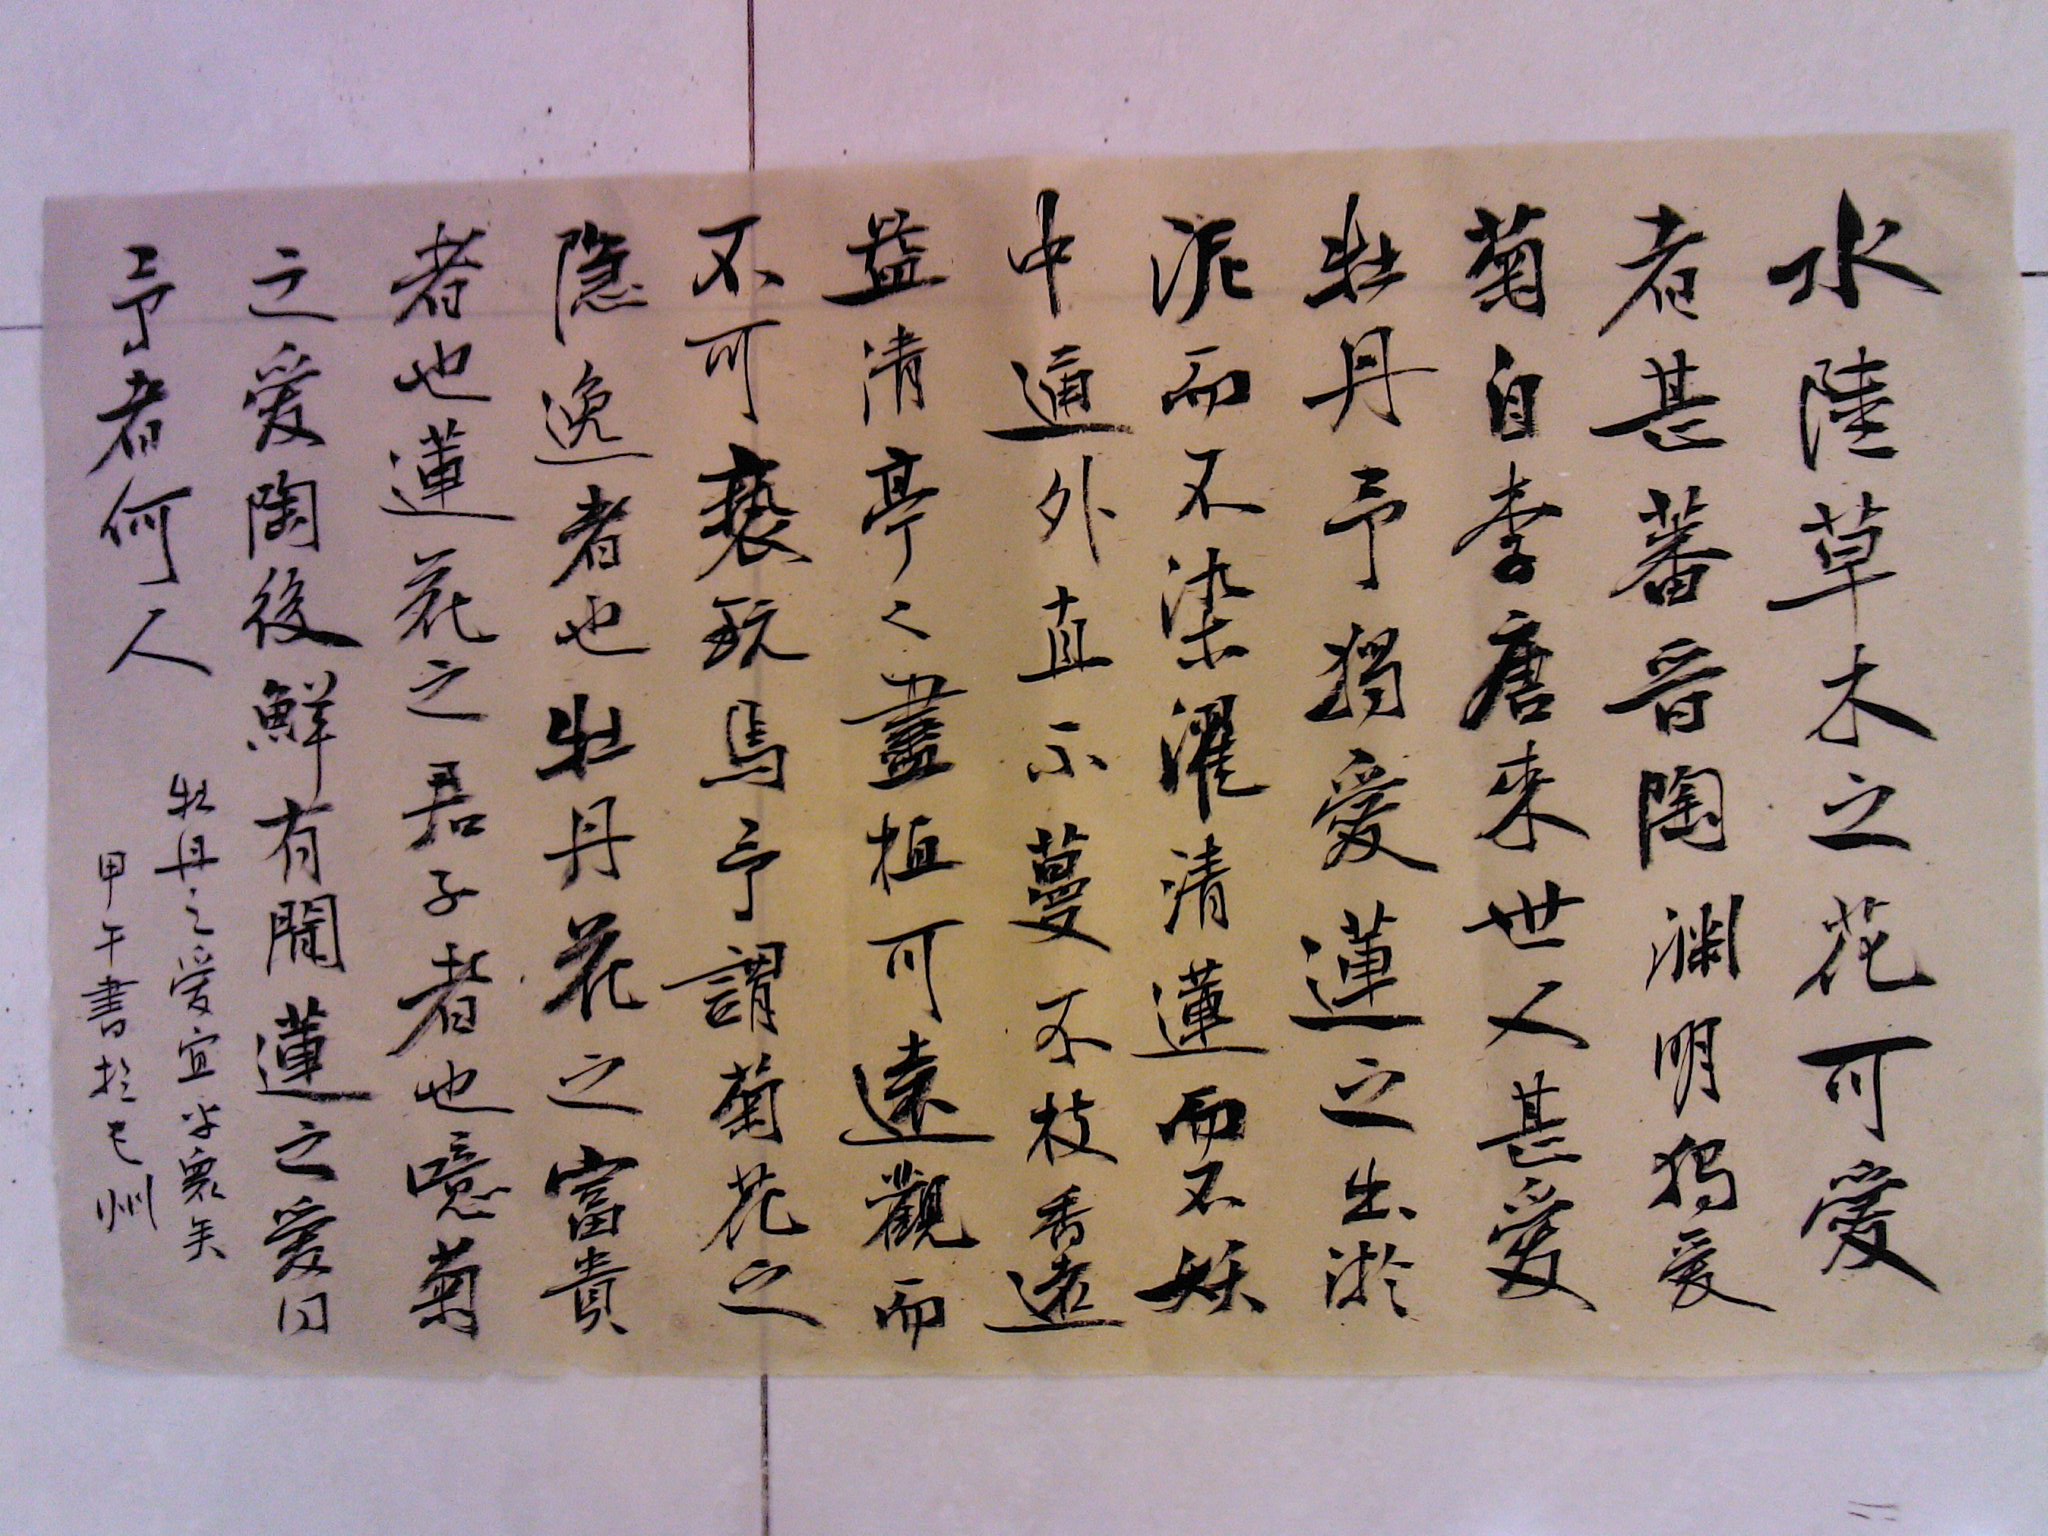 水陸草木之花可愛
者甚蕃晉陶渊明獨爱
菊自李唐来世人甚愛
牡丹予獨愛蓮之出淤
泥而不染濯清蓮而不妖
中通外直不蔓不枝香遠
益清亭々盡植可遠觀而
不可亵玩焉予謂菊花之
隐逸者也牡丹花之富貴
者也蓮花之君子者也噫菊
之愛陶後鮮有聞蓮之愛同
予者何人
牡丹之爱宜乎衆矣
甲午書於七州